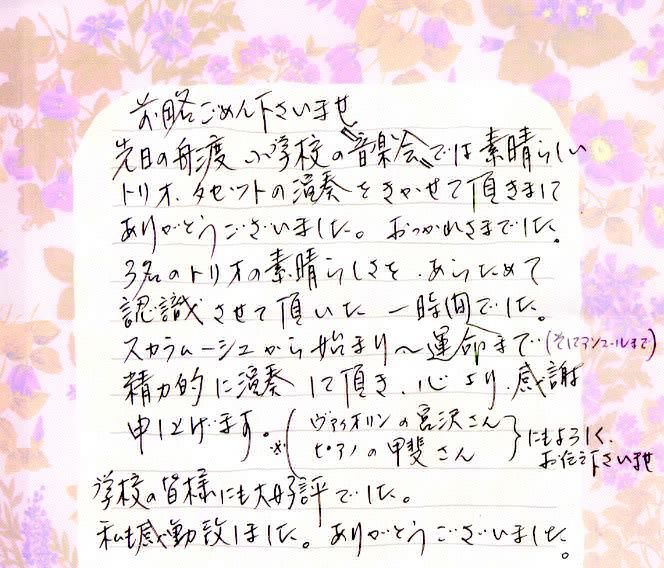 前略ごめん下さいませ
先日の舟渡小学校の“音楽会”では素晴らしい
トリオ、タセットの演奏をきかせて頂きまして
ありがとうございました。おつかれさまでした。
3名のトリオの素晴らしさを、あらためて
認識させて頂いた一時間でした。
スカラムーシュから始まり〜運命まで(そしてアンコールまで)
精力的に演奏して頂き、心より、感謝
申し上げます。※(ヴァイオリンの宮沢さん
ピアノの甲斐さん}にもよろしく、
お伝え下さいませ
学校の皆様にも大好評でした。
私も感動致しました。ありがとうございました。